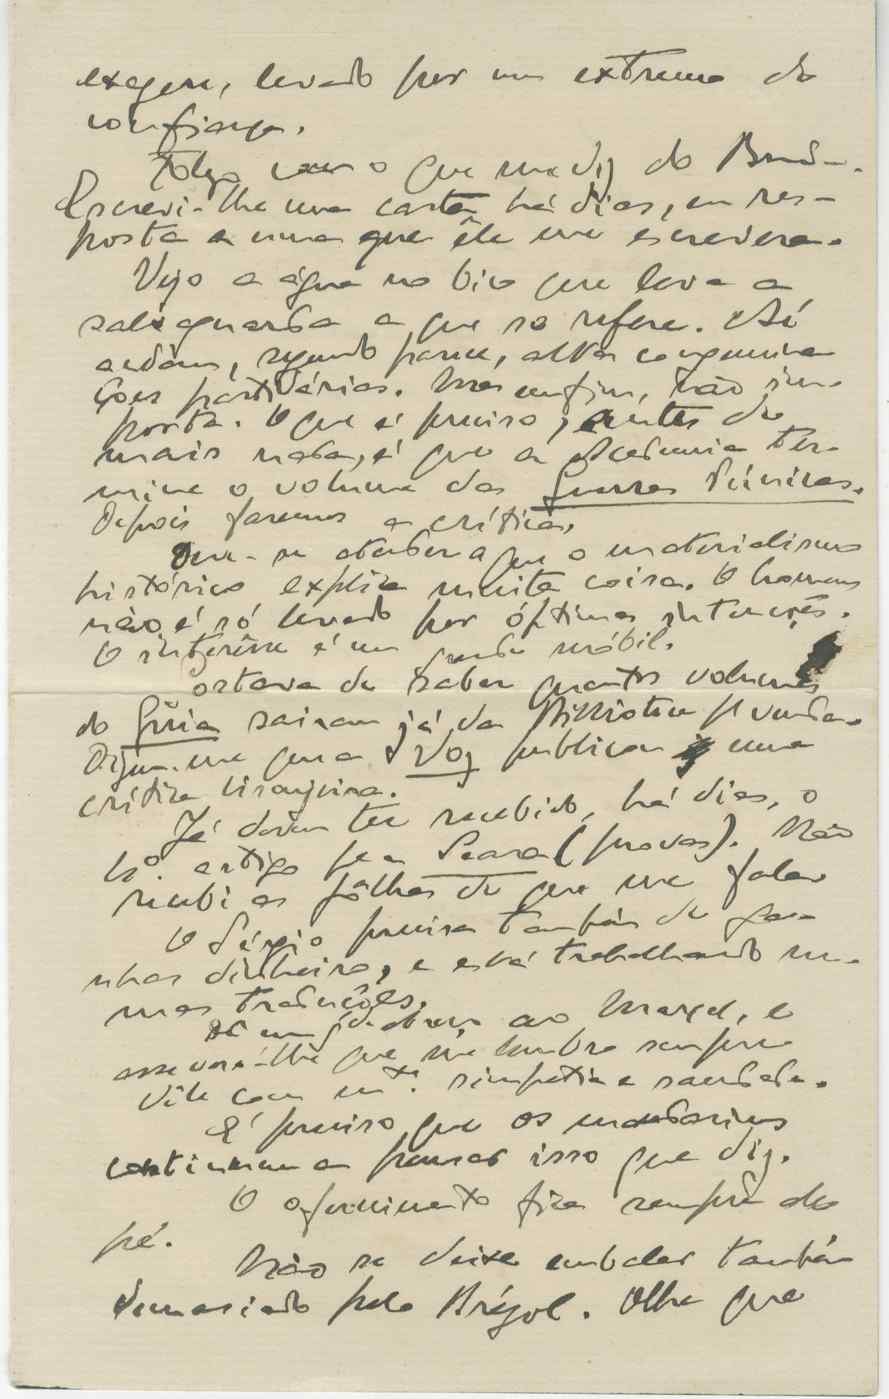 exagere, levado por um extremo de
confiança.
Folgo com o que me diz do
Escrevi-lhe uma carta há dias, em res-
posta a uma que êle me escrevera.
Vejo a água no bico que leva a
salvaguarda a que se refere. Aí
andam, segundo parece, altas congemina
ções partidárias. Mas enfim, não im-
porta. O que é preciso, antes de
mais nada, é que a Academia ter-
mine o volume das Guerras Púnicas.
Depois faremos a crítica.
que o materialismo
histórico explica muita coisa. O homem
não é só levado por óptimas intenções.
O interêsse é um grande móbil.
Gostava de saber quantos volumes
do Guia sairam já da Biblioteca
Dizem-me que a Voz publicou uma
crítica lisonjeira.
Já devem ter recebido, há dias, o
artigo pª a Seara (provas). Não
recebi as fôlhas de que me fala
O Sérgio precisa também de ga-
nhar dinheiro, e está trabalhando nu-
mas traduções.
Dê um abraço ao Marçal, e
assevere-lhe que me lembro sempre
dêle com mta. simpatia e saudade.
É preciso que os mandarins
continuem a pensar isso que diz.
O oferecimento fica sempre de
pé.
Não se deixe embalar também
demasiado pelo Bréyol. Olhe que